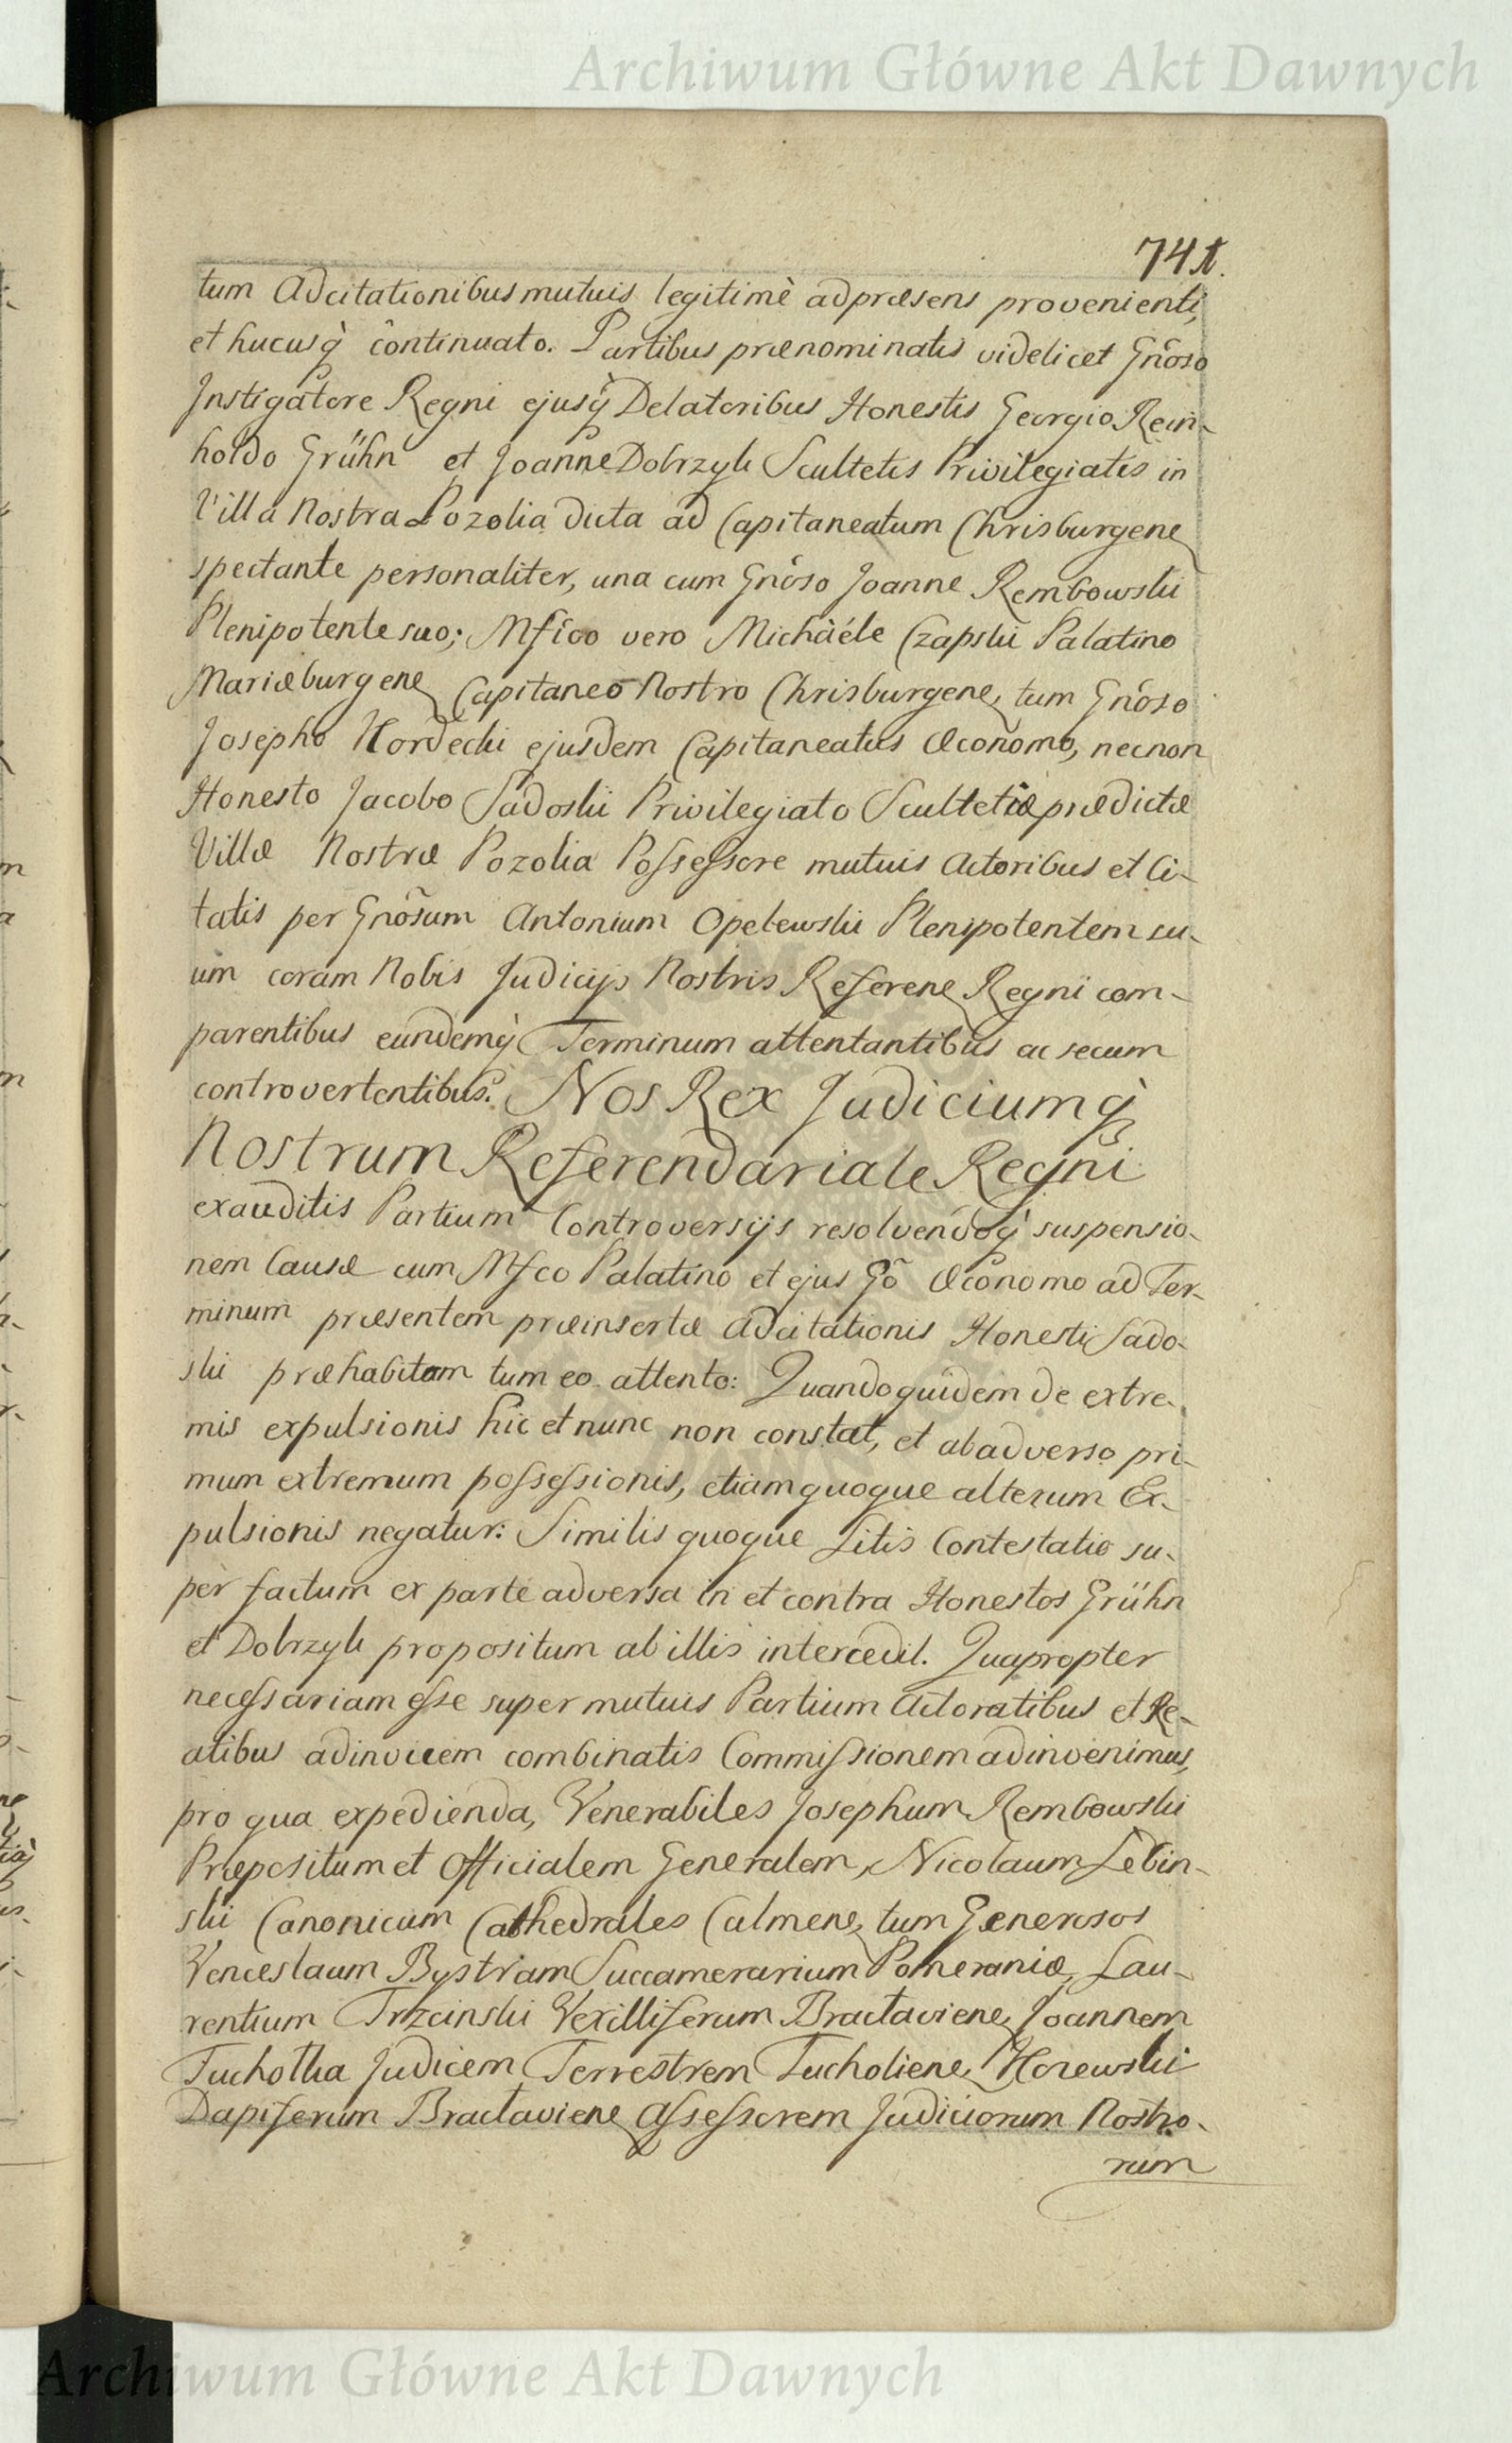 Archiwum Główne Akt Dawnych
741.
tum Adcitationibus mutuis legitimè ad præsens provenienti,
et hucusq̀ côntinuato. Partibus prænominatis videlicet Gnôso
Instigatore Regni ejusq̀ Delatoribus Honestis Georgio Rein-
holdo Grühn et Joanne Dobrzyk Scultetis Privilegiatis in
Villa Nostra Pozolia dicta ad Capitaneatum Chrisburgene
spectante personaliter, una cum Gnôso Joanne Rembowski
Plenipotente suo; Mfico vero Michàéle Czapski Palatino
Mariæburgene Capitaneo Nostro Chrisburgene, tum Gnôso
Josepho Kordecki ejusdem Capitaneatus Œconomo, necnon
Honesto Jacobo Sadoski Privilegiato Scultetiæ prædictæ
Villæ Nostræ Pozolia Possessore mutuis Actoribus et Ci-
tatis per Gnôsum Antonium Opelewski Plenipotentem su-
um coram Nobis Judicijs Nostris Referene Regni com-
parentibus eundemq̀ Terminum attentantibus ac secum
controvertentibus. Nos Rex Judiciumq̀
Nostrum Referendariale Regni
exauditis Partium Controversijs resolvendoq̀ suspensio-
nem Causæ cum Mfco Palatino et ejus Gô Œconomo ad Ter-
minum præsentem præinsertæ Adcitationis Honesti Sado-
ski præhabitam tum eo attento: Quandoquidem de extre-
mis expulsionis hic et nunc non constat, et ab adverso pri-
mum extremum possessionis, etiam quoque alterum Ex-
pulsionis negatur: Similis quoque Litis Contestatio su-
per factum ex parte adversa in et contra Honestos Grühn
et Dobrzyk propositum ab illis intercedit. Quapropter
necessariam esse super mutuis Partium Actoratibus et Re-
atibus adinvicem combinatis Commissionem adinvenimus,
pro qua expedienda, Venerabiles Josephum Rembowski
Præpositum et Officialem Generalem, Nicolaum Lebin-
ski Canonicum Cathedrales Culmene, tum Generosos
Venceslaum Bystram Succamerarium Pomeraniæ, Lau-
rentium Trzcinski Vexilliferum Bractaviene, Joannem
Tuchołka Judicem Terrestrem Tucholiene,
Dapiferum Bractaviene Assessorem Judiciorum Nostro-
rum
Archiwum Główne Akt Dawnych